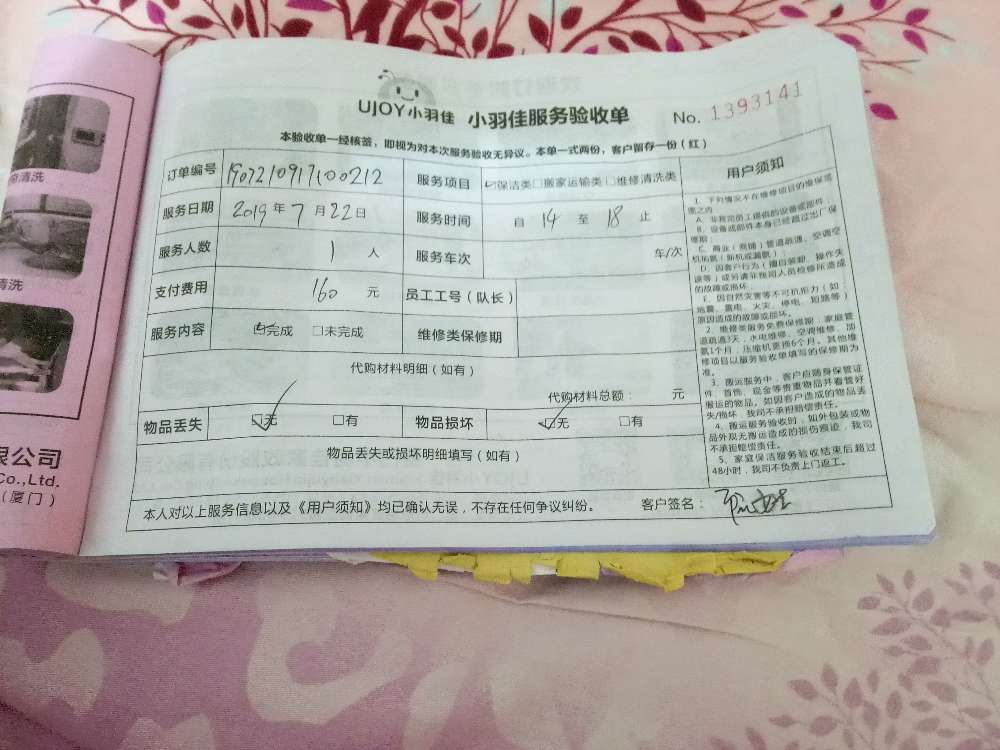 清洗
清洗
限公司
Co.,Ltd.
(厦门)
UJOY小羽佳 小羽佳服务验收单 No. 1393141
本验收单一经核签,即视为对本次服务验收无异议。本单一式两份,客户留存一份(红)
订单编号 1907210917100212 服务项目 ☑保洁类□搬家运输类□维修清洗类
服务日期 2019年7月22日 服务时间 自 14 至 18 止
服务人数 1 人 服务车次 车/次
支付费用 160 元 员工工号(队长)
服务内容 ☑完成 □未完成 维修类保修期
代购材料明细(如有)
代购材料总额: 元
物品丢失 ☑无 □有 物品损坏 ☑无 □有
物品丢失或损坏明细填写(如有)
本人对以上服务信息以及《用户须知》均已确认无误,不存在任何争议纠纷。 客户签名:
用户须知
1、下列情况不在维修项目的维保范
围之内:
A、非我司员工提供的设备或部件
B、设备或部件本身已经超过出厂保
修期
C、商业(商铺)管道疏通、空调空
机加氟(新机或漏氟)
D、因客户行为(擅自装卸、操作失
误等)或另请非我司人员检修所造成
的故障或损坏
E、因自然灾害等不可抗拒力(如:
地震、雷电、火灾、停电、短路等)
原因造成的故障或损坏。
2、维修类服务免费保修期:家庭管
道疏通3天;水电维修、空调维修、加
氨1个月;压缩机更换6个月。其他维
修项目以服务验收单填写的保修期为
准。
3、搬运服务中,客户应随身保管证
件、首饰、现金等贵重物品并看管好
搬运的物品。如因客户造成的物品丢
失/损坏,我司不承担赔偿责任。
4、搬运服务验收时,如外包装或物
品外观无搬运造成的损伤痕迹,我司
不承担赔偿责任。
5、家庭保洁服务验收结束后超过
48小时,我司不负责上门返工。